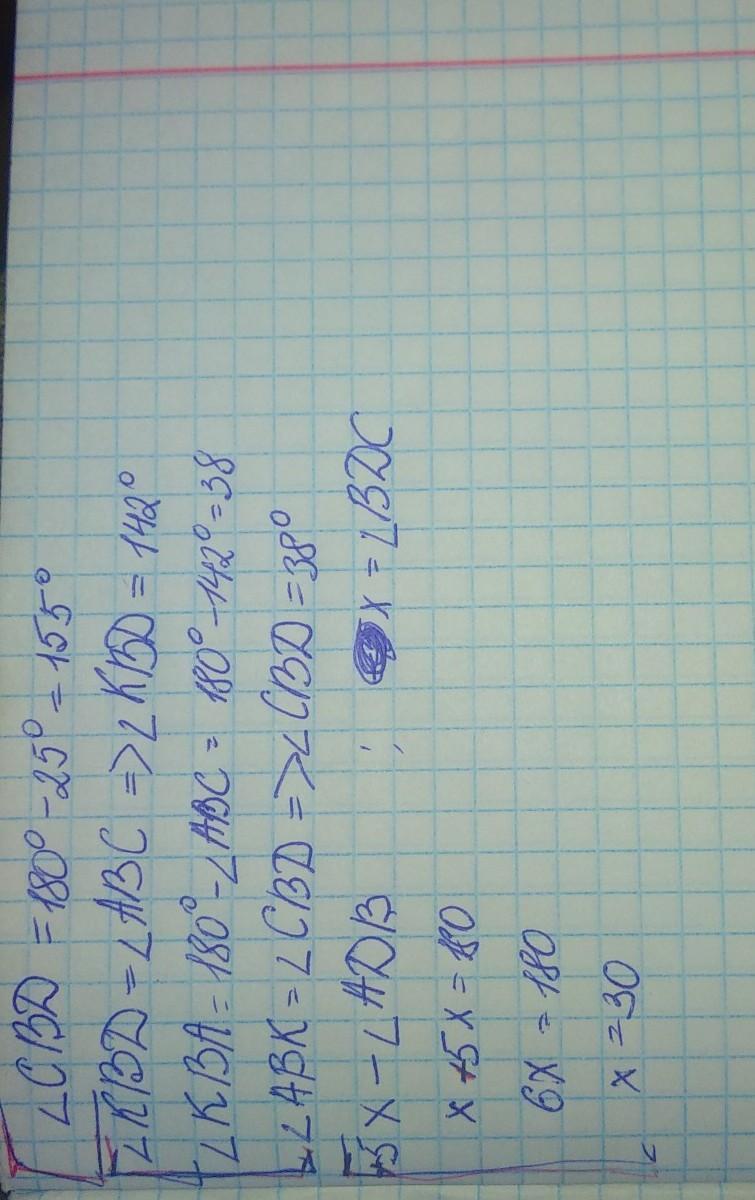 ∠CBD = 180° - 25° = 155°
∠KBD = ∠ABC => ∠KBD = 142°
∠KBA = 180° - ∠ABC = 180° - 142° = 38
∠ABK = ∠CBD => ∠CBD = 38°
5x - ∠ADB ; x = ∠BDC
x + 5x = 180
6x = 180
x = 30